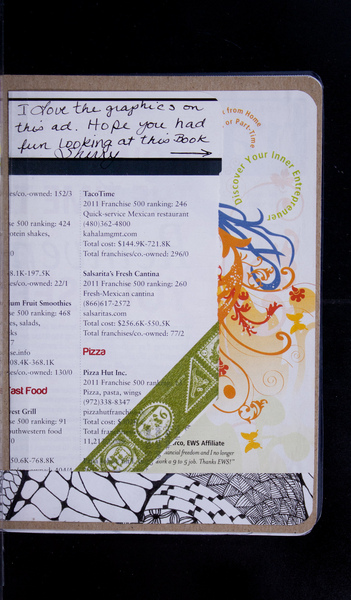 I Love the graphics on
this ad. Hope you had
fun Looking at this Book
from Home
or Part-Time
Discover Your Inner Entrepreneur
es/co.-owned: 152/3
500 ranking: 424
otein shakes,
8.1K-197.5K
es/co.-owned: 22/1
um Fruit Smoothies
500 ranking: 468
es, salads,
ks
se.info
08.4K-368.1K
es/co.-owned: 130/0
ast Food
vest Grill
500 ranking: 91
uthwestern food
50.6K-768.8K
TacoTime
2011 Franchise 500 ranking: 246
Quick-service Mexican restaurant
(480)362-4800
kahalamgmt.com
Total cost: $144.9K-721.8K
Total franchises/co.-owned: 296/0
Salsarita's Fresh Cantina
2011 Franchise 500 ranking: 260
Fresh-Mexican cantina
(866)617-2572
salsaritas.com
Total cost: $256.6K-550.5K
Total franchises/co.-owned: 77/2
Pizza
Pizza Hut Inc.
2011 Franchise 500 ranking
Pizza, pasta, wings
(972)338-8347
pizzahutfranchise
Total cost:
Total
rco, EWS Affiliate
financial freedom and I no longer
work a 9 to 5 job. Thanks EWS!"